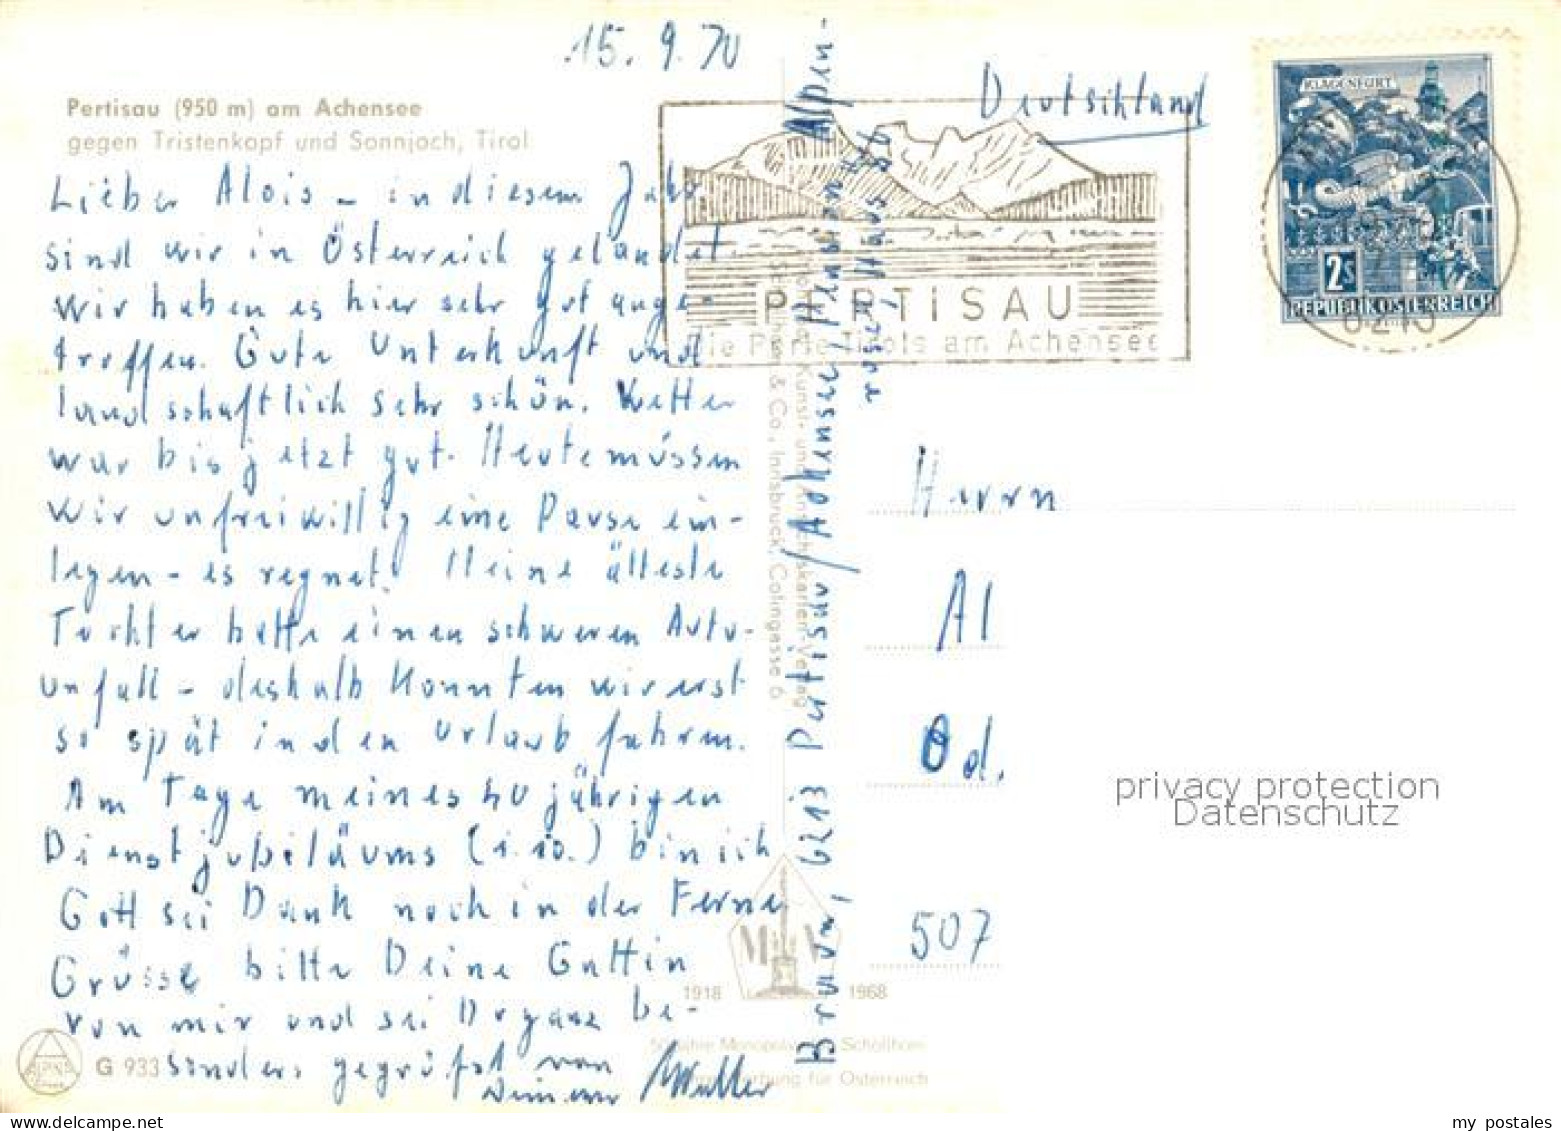 15. 9. 70
Pertisau (950 m) am Achensee
gegen Tristenkopf und Sonnjoch, Tirol
Lieber Alois - in diesem Jahr
sind wir in Österreich gelandet.
Wir haben es hier sehr gut ange-
troffen. Gute Unterkunft und
landschaftlich sehr schön. Wetter
war bis jetzt gut. Heute müssen
wir unfreiwillig eine Pause ein-
legen - es regnet. Meine älteste
Tochter hatte einen schweren Auto-
unfall - deshalb konnten wir erst
so spät in den Urlaub fahren.
Am Tage meines 40 jährigen
Dienstjubiläums (1.10.) bin ich
Gott sei Dank noch in der Ferne
Grüsse bitte Deine Gattin
von mir und sei be-
sonders gegrüßt von
Deinem
G 933
Pertisau/Achensee/Pension Alpen-
6213
unser Haus
Kunst- und Ansichtskarten-Verlag
& Co., Innsbruck, Colingasse 6
1918 1968
50 Jahre Monopol Schöllhorn
Werbung für Österreich
Deutschland
PERTISAU
Die Perle Tirols am Achensee
KLAGENFURT
2S
REPUBLIK ÖSTERREICH
6213
Herrn
Al
Od.
507
privacy protection
Datenschutz
my postales